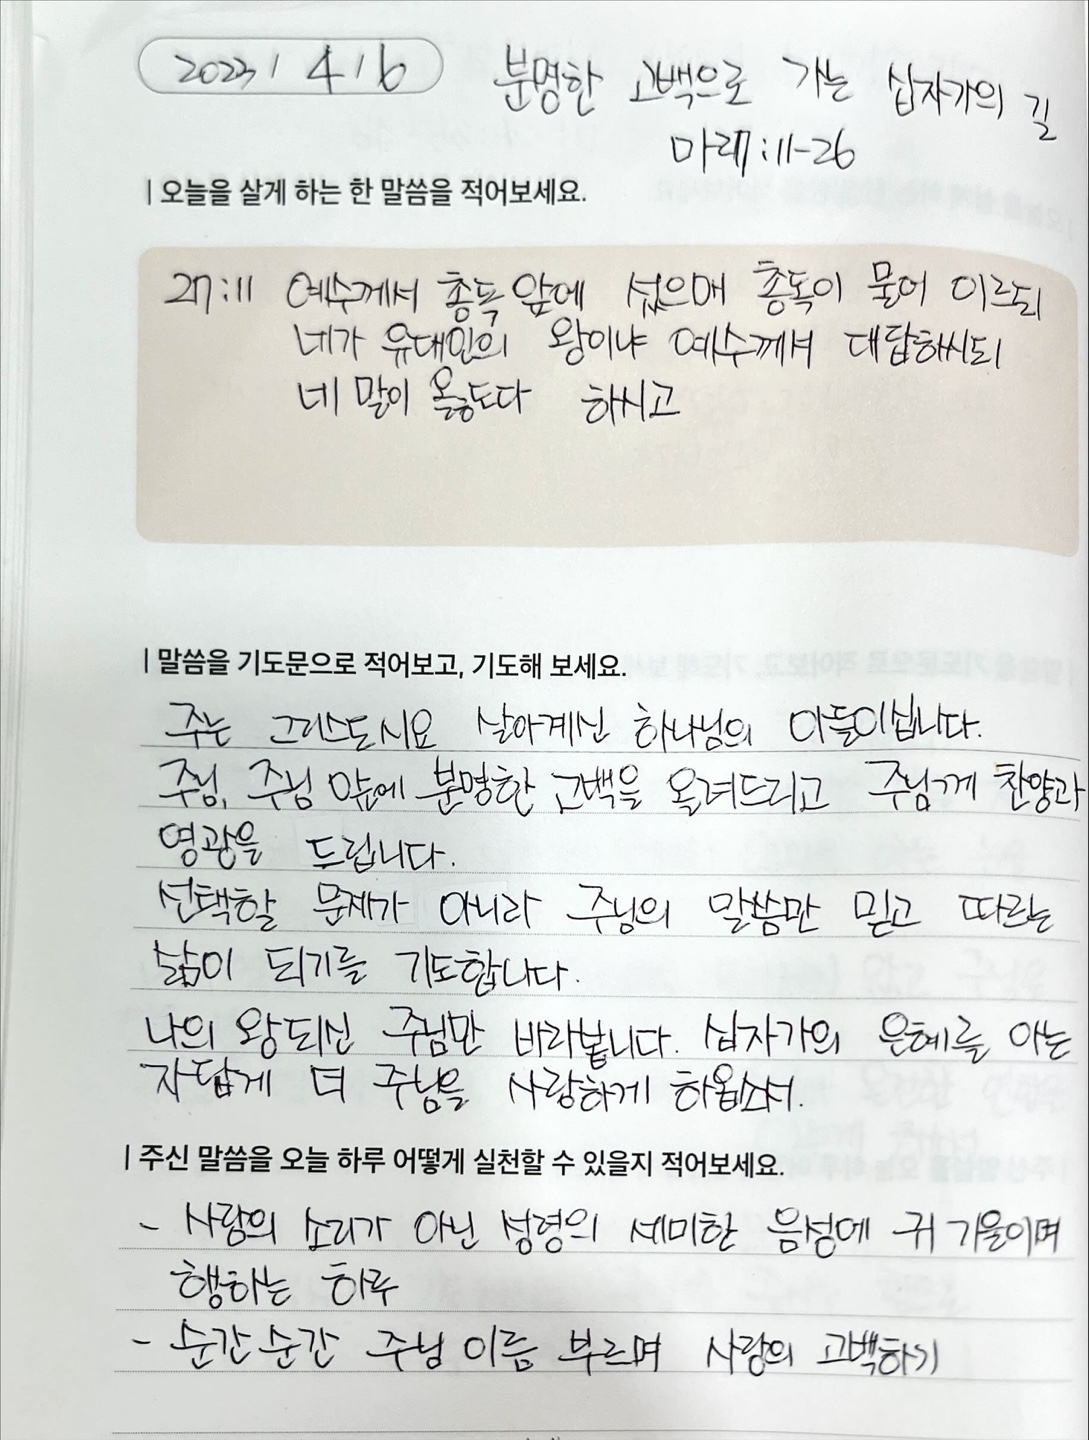 2023 / 4 / 6
분명한 고백으로 가는 십자가의 길
마27:11-26
| 오늘을 살게 하는 한 말씀을 적어보세요.
27:11 예수께서 총독 앞에 섰으매 총독이 물어 이르되
네가 유대인의 왕이냐 예수께서 대답하시되
네 말이 옳도다 하시고
| 말씀을 기도문으로 적어보고, 기도해 보세요.
주는 그리스도시요 살아계신 하나님의 아들이십니다.
주님, 주님 앞에 분명한 고백을 올려드리고 주님께 찬양과
영광을 드립니다.
선택할 문제가 아니라 주님의 말씀만 믿고 따르는
삶이 되기를 기도합니다.
나의 왕되신 주님만 바라봅니다. 십자가의 은혜를 아는
자답게 더 주님을 사랑하게 하옵소서.
| 주신 말씀을 오늘 하루 어떻게 실천할 수 있을지 적어보세요.
- 사람의 소리가 아닌 성령의 세미한 음성에 귀 기울이며
행하는 하루
- 순간순간 주님 이름 부르며 사랑의 고백하기